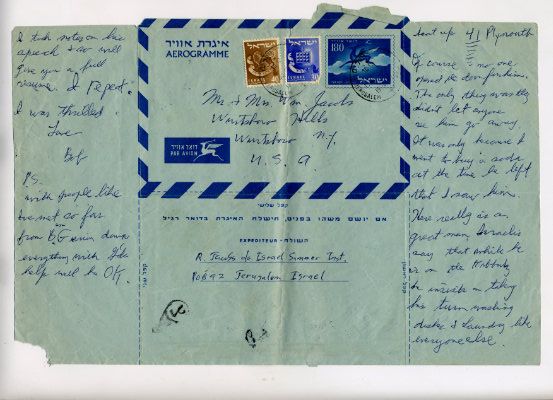 I took notes on his
speech & so will
give you a full
resume. I repeat
I was thrilled.
Love
Bob
P.S.
with people like
I've met so far
from B.G. down
everything with God's
help will be OK.
אגרת אויר
AEROGRAMME
ישראל
ישראל
180
ישראל
JERUSALEM
Mr & Mrs. Wm Jacobs
Wurtsboro Hills
Wurtsboro N.Y.
U.S.A
דואר אויר
PAR AVION
קפל שלישי
אם יושם משהו בפנים, תישלח האיגרת בדואר רגיל
השולח - EXPEDITEUR
R. Jacobs c/o Israel Summer Inst.
POB 92 Jerusalem Israel
קפל שני
קפל שני
went up 41 Plymouth
Of course no one
opened the door for him.
The only thing was they
didn't let anyone
see him go away.
It was only because I
went to buy a soda
at the time he left
that I saw him.
He really is a
great man. Israelis
say that while he
is on the Kibbutz
he insists on taking
his turn washing
dishes & laundry like
everyone else.